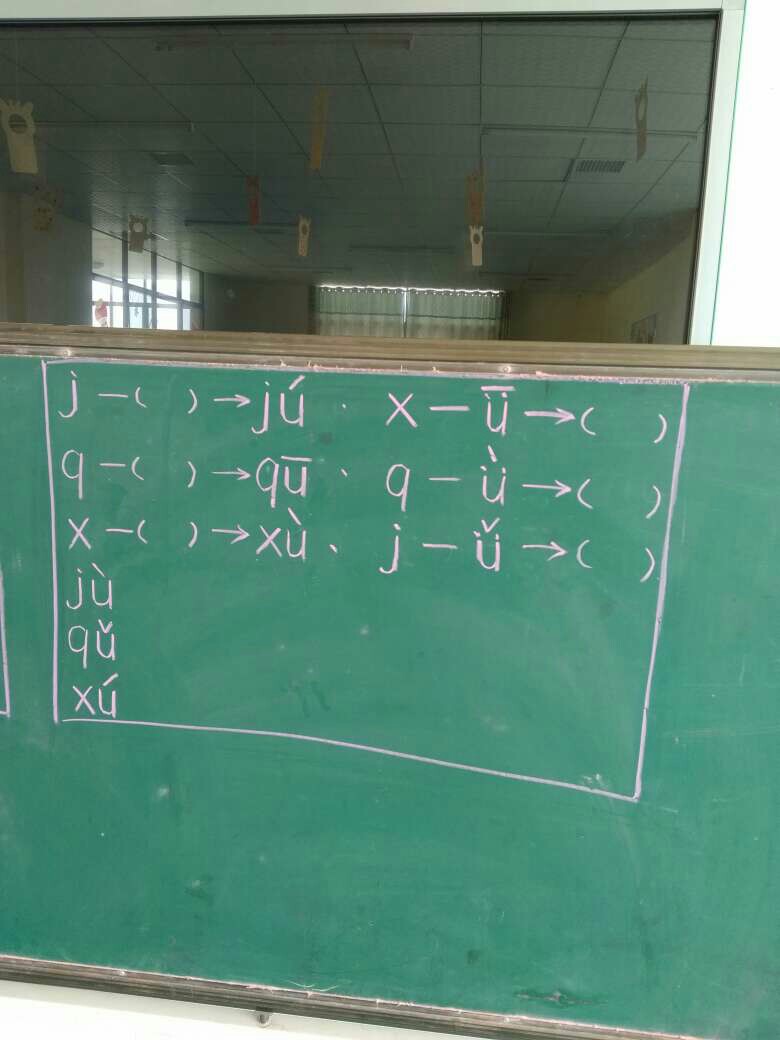 j—( )→jú. x—ǖ→( )
q—( )→qū、q—ǜ→( )
x—( )→xù、j—ǚ→( )
jù
qǔ
xú